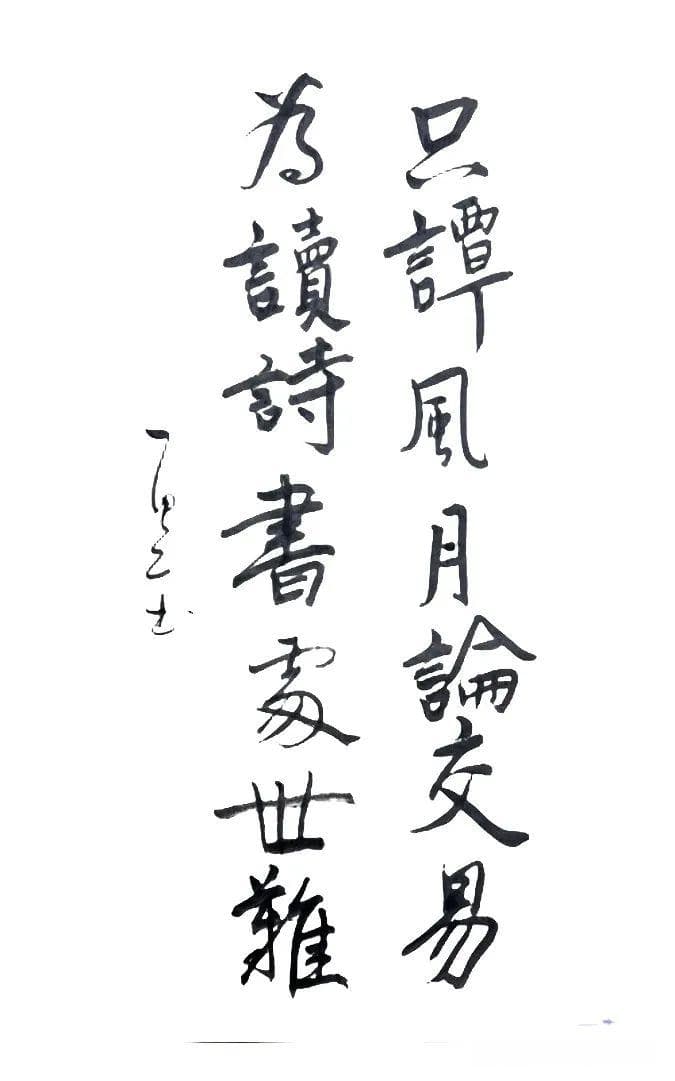 只譚風月論交易
為讀詩書處世難